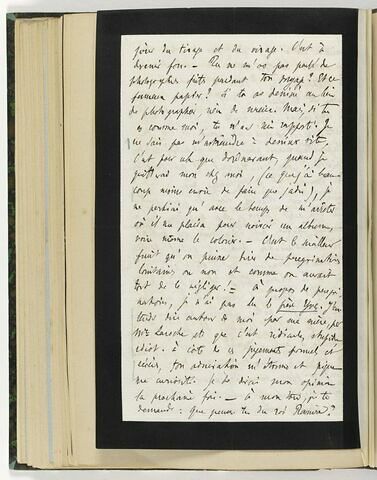 jour du tirage et du virage. C'est à
devenir fou. — Tu ne m'as pas parlé de
photographies faites pendant ton voyage? Et ce
fameux papier? Si tu as dessiné au lieu
de photographier rien de mieux. Mais si tu
es comme moi, tu n'as rien rapporté. Je
ne sais pas m'astreindre à dessiner vite.
C'est pour cela que dorénavant, quand je
quitterai mon chez moi, (ce que j'ai beau-
coup moins envie de faire que jadis), je
ne partirai qu'avec le temps de m'arrêter
où il me plaira pour noircir un album,
voire même le colorier. — C'est le meilleur
fruit qu'on puisse tirer de pérégrinations
lointaines ou non et comme on aurait
tort de le négliger! — À propos de pérégri-
nations, je n'ai pas lu le père Yves. J'en-
tends dire autour de moi par ma mère, par
Mme Laroche et que c'est ridicule, stupide
idiot. À côté de ce jugement formel et
ton admiration m'étonne et pique
ma curiosité. Je te dirai mon opinion
la prochaine fois. — À mon tour, je te
demande: que penses-tu du roi Ramire?